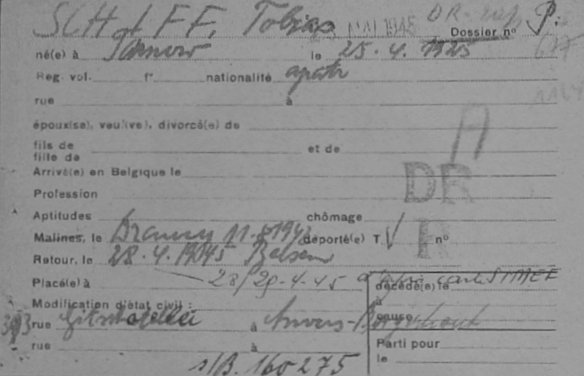 SCHIFF, Tobias MAI 1945 DR-rap P.
Dossier n°
né(e) à Tarnow le 25.4.1925
Reg. vol. f° nationalité apatr
rue à
époux(se), veuf(ve), divorcé(e) de
fils de
fille de et de
Arrivé(e) en Belgique le
Profession DR
Aptitudes chômage R
Malines, le Drancy 11. 1942 déporté(e) T. n°
Retour, le 28.4.1945 Belsen
Placé(e) à 28/29-4-45
décédé(e) le
Modification d'état civil : à
rue à Anvers-Borgerhout
rue à Parti pour
s/B. 160275 le